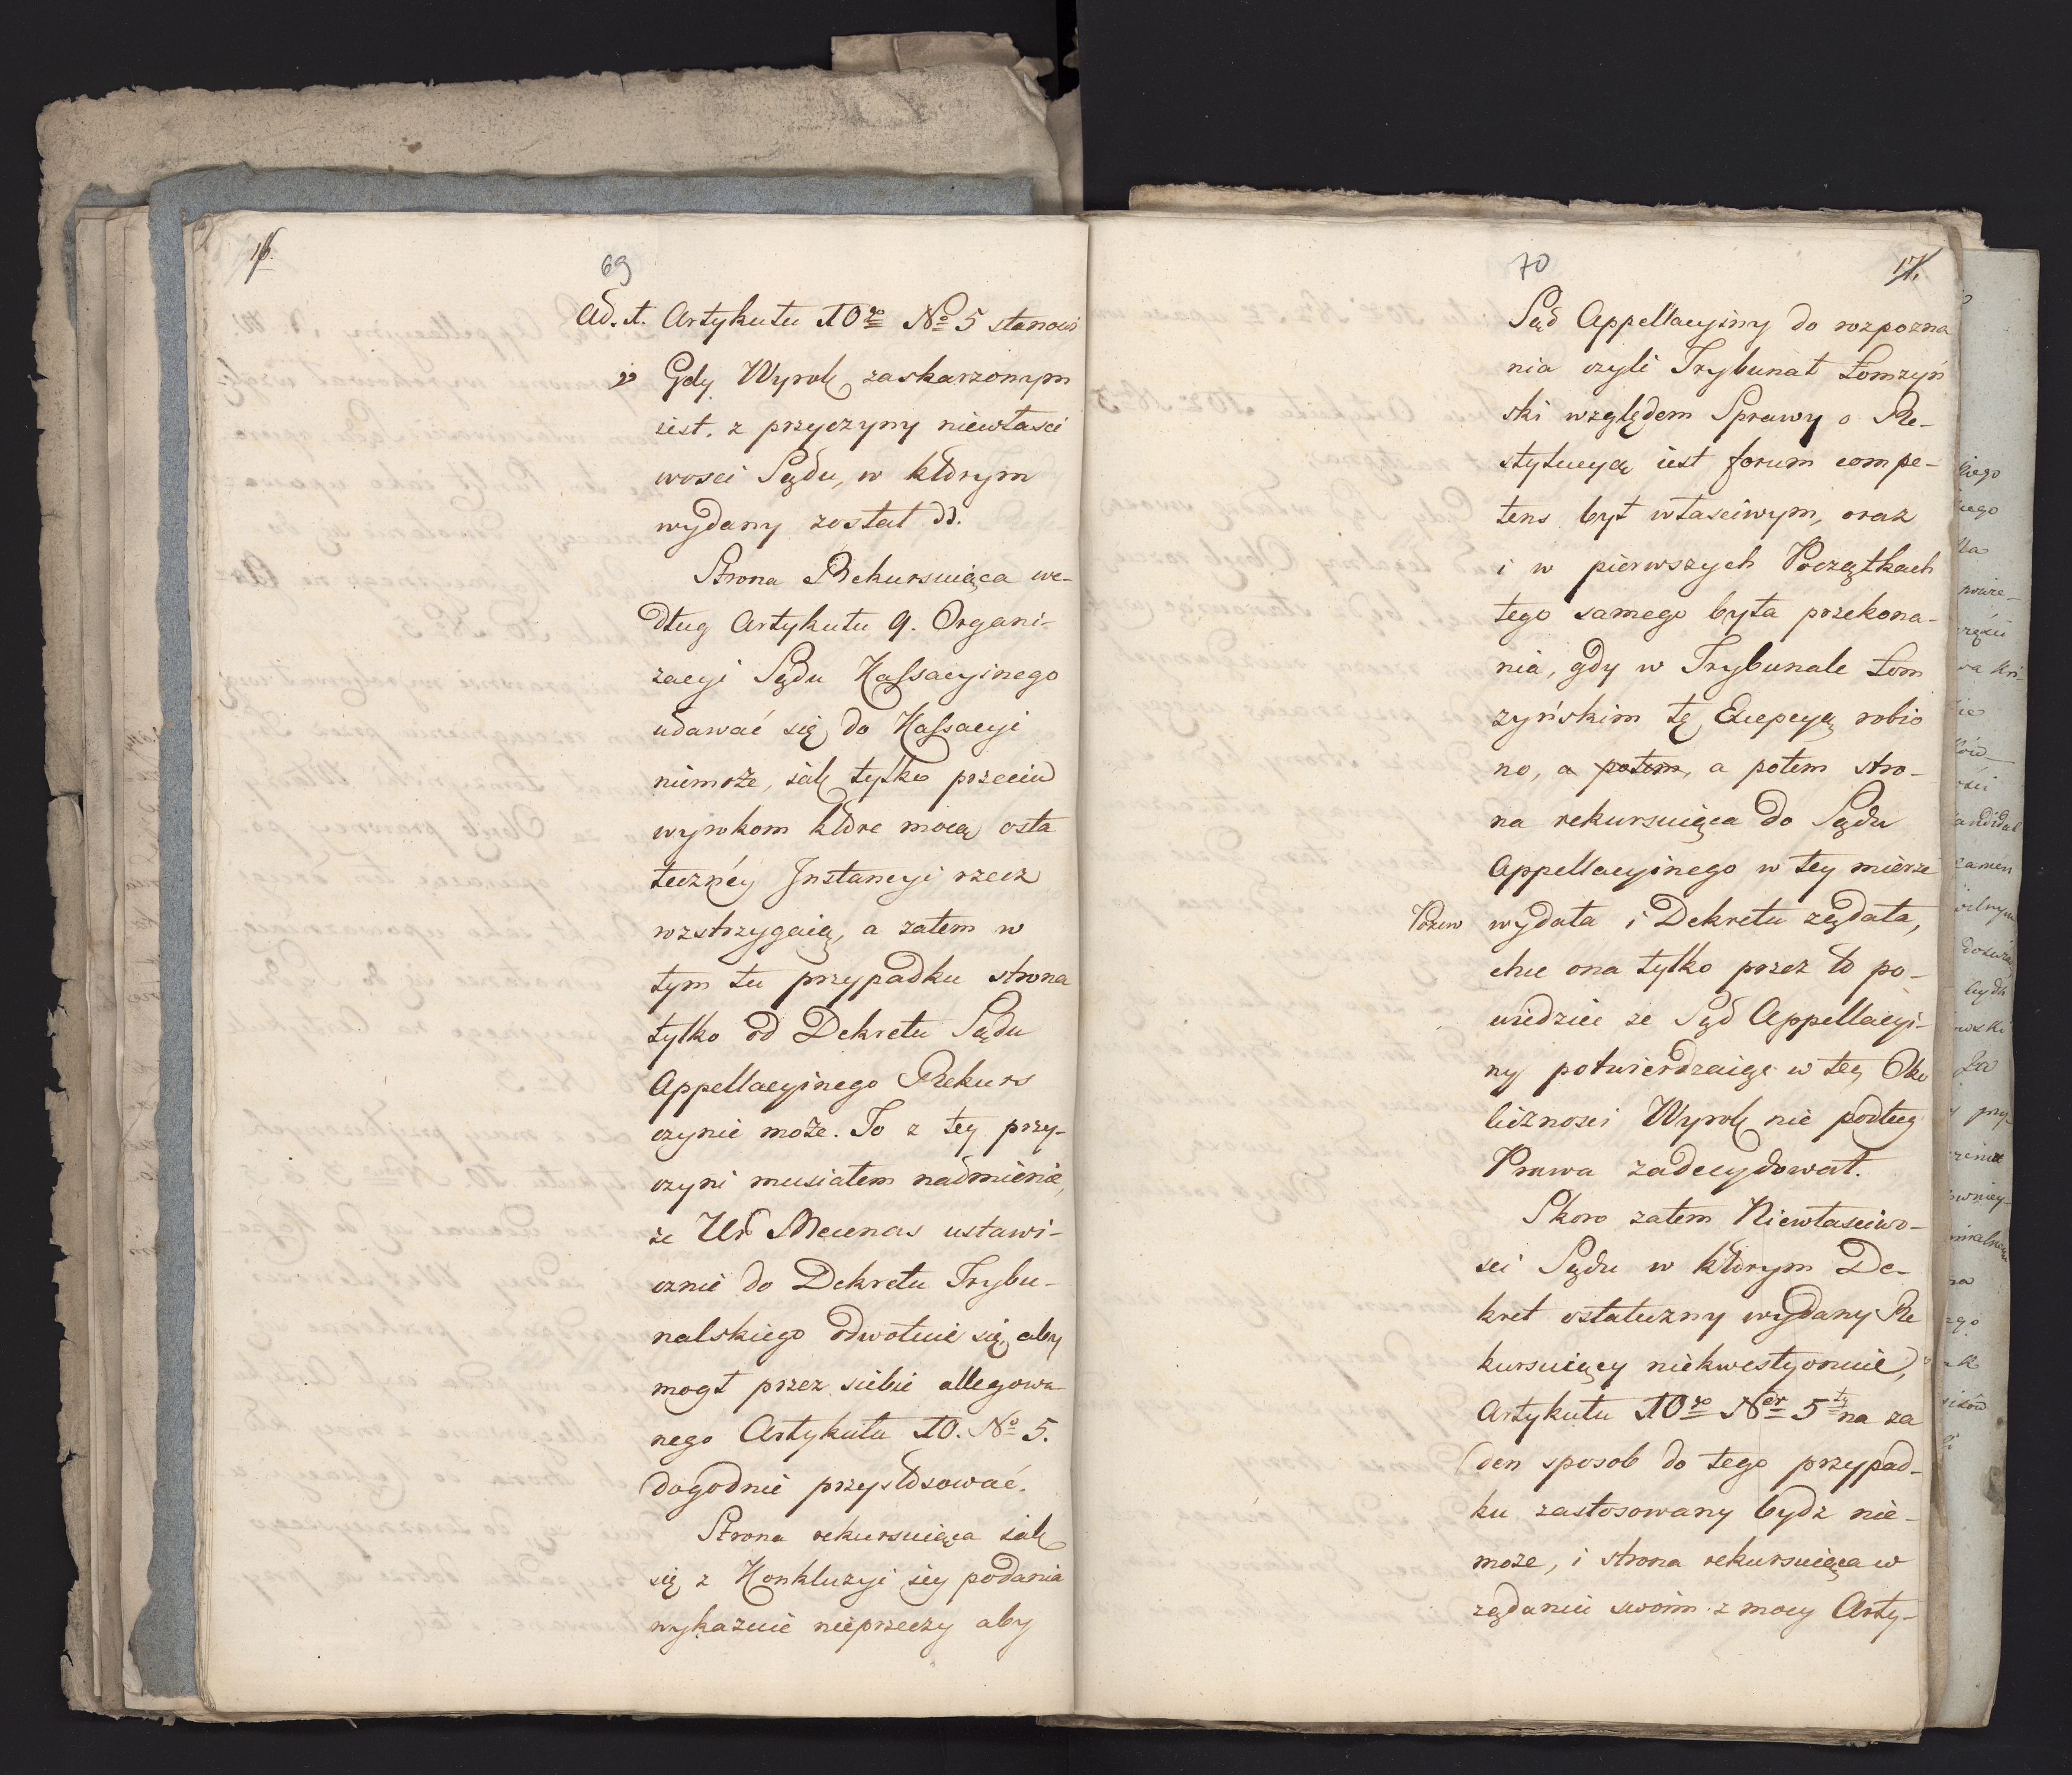 16.
69
Ad. 1. Artykułu 10go No 5 stanowi
Gdy Wyrok zaskarzonym
iest. z przyczyny niewłasci
wosci Sądu, w którym
wydany został dd.
Strona Rekursuiąca we-
dług Artykułu 9. Organi-
zacyi Sądu Kassacyinego
udawać się do Kassacyi
niemoże, iak tylko przeciw
wyrokom które mocą osta
teczney Instancyi rzecz
rozstrzygaią, a zatem w
tym tu przypadku strona
tylko od Dekretu Sądu
Appellacyinego Rekurs
czynic może. To z tey przy-
czyni musiałem nadmienic,
że Ur Mecenas ustawi-
cznie do Dekretu Trybu-
nalskiego odwołuie się, aby
mogł przez siebie allegowa
nego Artykułu 10. No 5.
dogodnie przystosować.
Strona rekursuiąca iak
się z Konkluzyi iey podania
wykazuie nieprzeczy aby
70
17.
Sąd Appellacyiny do rozpozna
nia czyli Trybunał Łomżyń
ski względem Sprawy o Re-
stytucyą iest forum compe-
tens był własciwym, oraz
i w pierwszych Początkach
tego samego była przekona-
nia, gdy w Trybunale Łom
żyńskim tę Excepcyą robio
no, a potem, a potem stro-
na rekursuiąca do Sądu
Appellacyinego w tey mierze
Pozew wydała i Dekretu żądała,
chce ona tylko przez to po-
wiedziec ze Sąd Appellacyi-
ny potwierdzaiąc w tey Oko
licznosci Wyrok nie podług
Prawa zadecydował.
Skoro zatem Niewłasciwo-
sci Sądu w którym De-
kret ostateczny wydany Re
kursuiący niekwestyonuie,
Artykułu 10go Ner 5ty na ża
den sposob do tego przypad-
ku zastosowany bydz nie-
może, i strona rekursuiąca w
żądaniu swoim z mocy Arty-